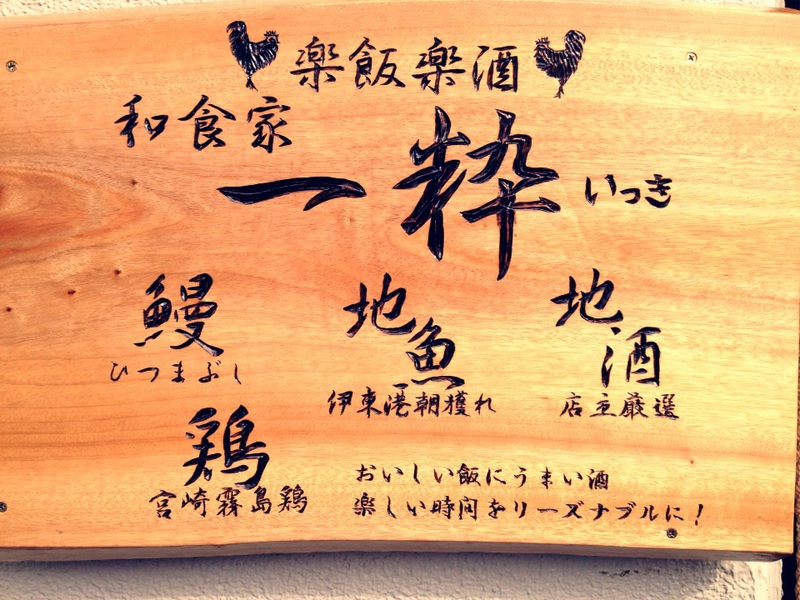 楽飯楽酒
和食家
一粋 いっき
鰻
ひつまぶし
地魚
伊東港朝獲れ
地酒
店主厳選
鶏
宮崎霧島鶏
おいしい飯にうまい酒
楽しい時間をリーズナブルに!